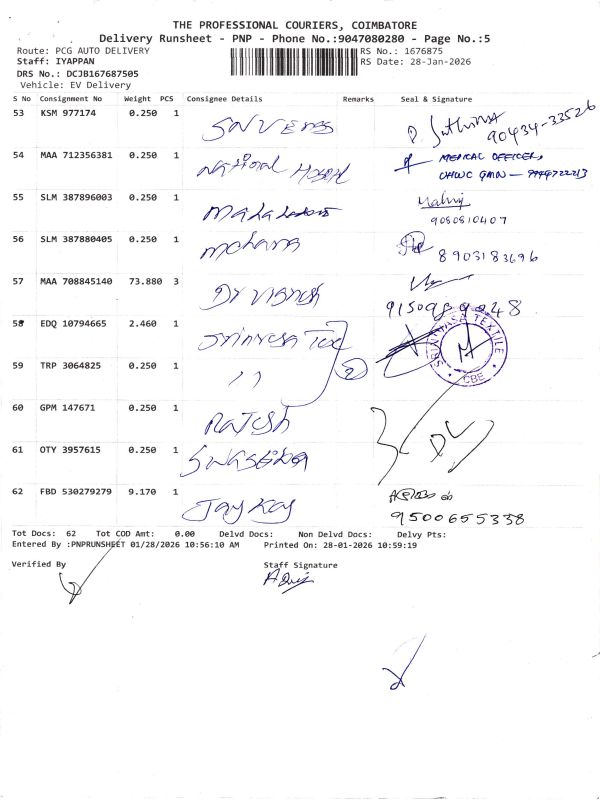 THE PROFESSIONAL COURIERS, COIMBATORE
Delivery Runsheet - PNP - Phone No.:9047080280 - Page No.:5
Route: PCG AUTO DELIVERY
RS No.: 1676875
Staff: IYAPPAN
RS Date: 28-Jan-2026
DRS No.: DCJB167687505
Vehicle: EV Delivery
S No Consignment No Weight PCS Consignee Details Remarks Seal & Signature
53 KSM 977174 0.250 1
90434-33526
54 MAA 712356381 0.250 1 National Hospital MEDICAL OFFICER,
55 SLM 387896003 0.250 1
9080810407
56 SLM 387880405 0.250 1 mohana
8903183696
57 MAA 708845140 73.880 3 Dr Vignesh
58 EDQ 10794665 2.460 1
SRINIVASA TEXTILE
CBE
59 TRP 3064825 0.250 1 11 2
60 GPM 147671 0.250 1 Rajesh
61 OTY 3957615 0.250 1
62 FBD 530279279 9.170 1 Jay Kay
9500655338
Tot Docs: 62 Tot COD Amt: 0.00 Delvd Docs: Non Delvd Docs: Delvy Pts:
Entered By :PNPRUNSHEET 01/28/2026 10:56:10 AM Printed On: 28-01-2026 10:59:19
Verified By Staff Signature